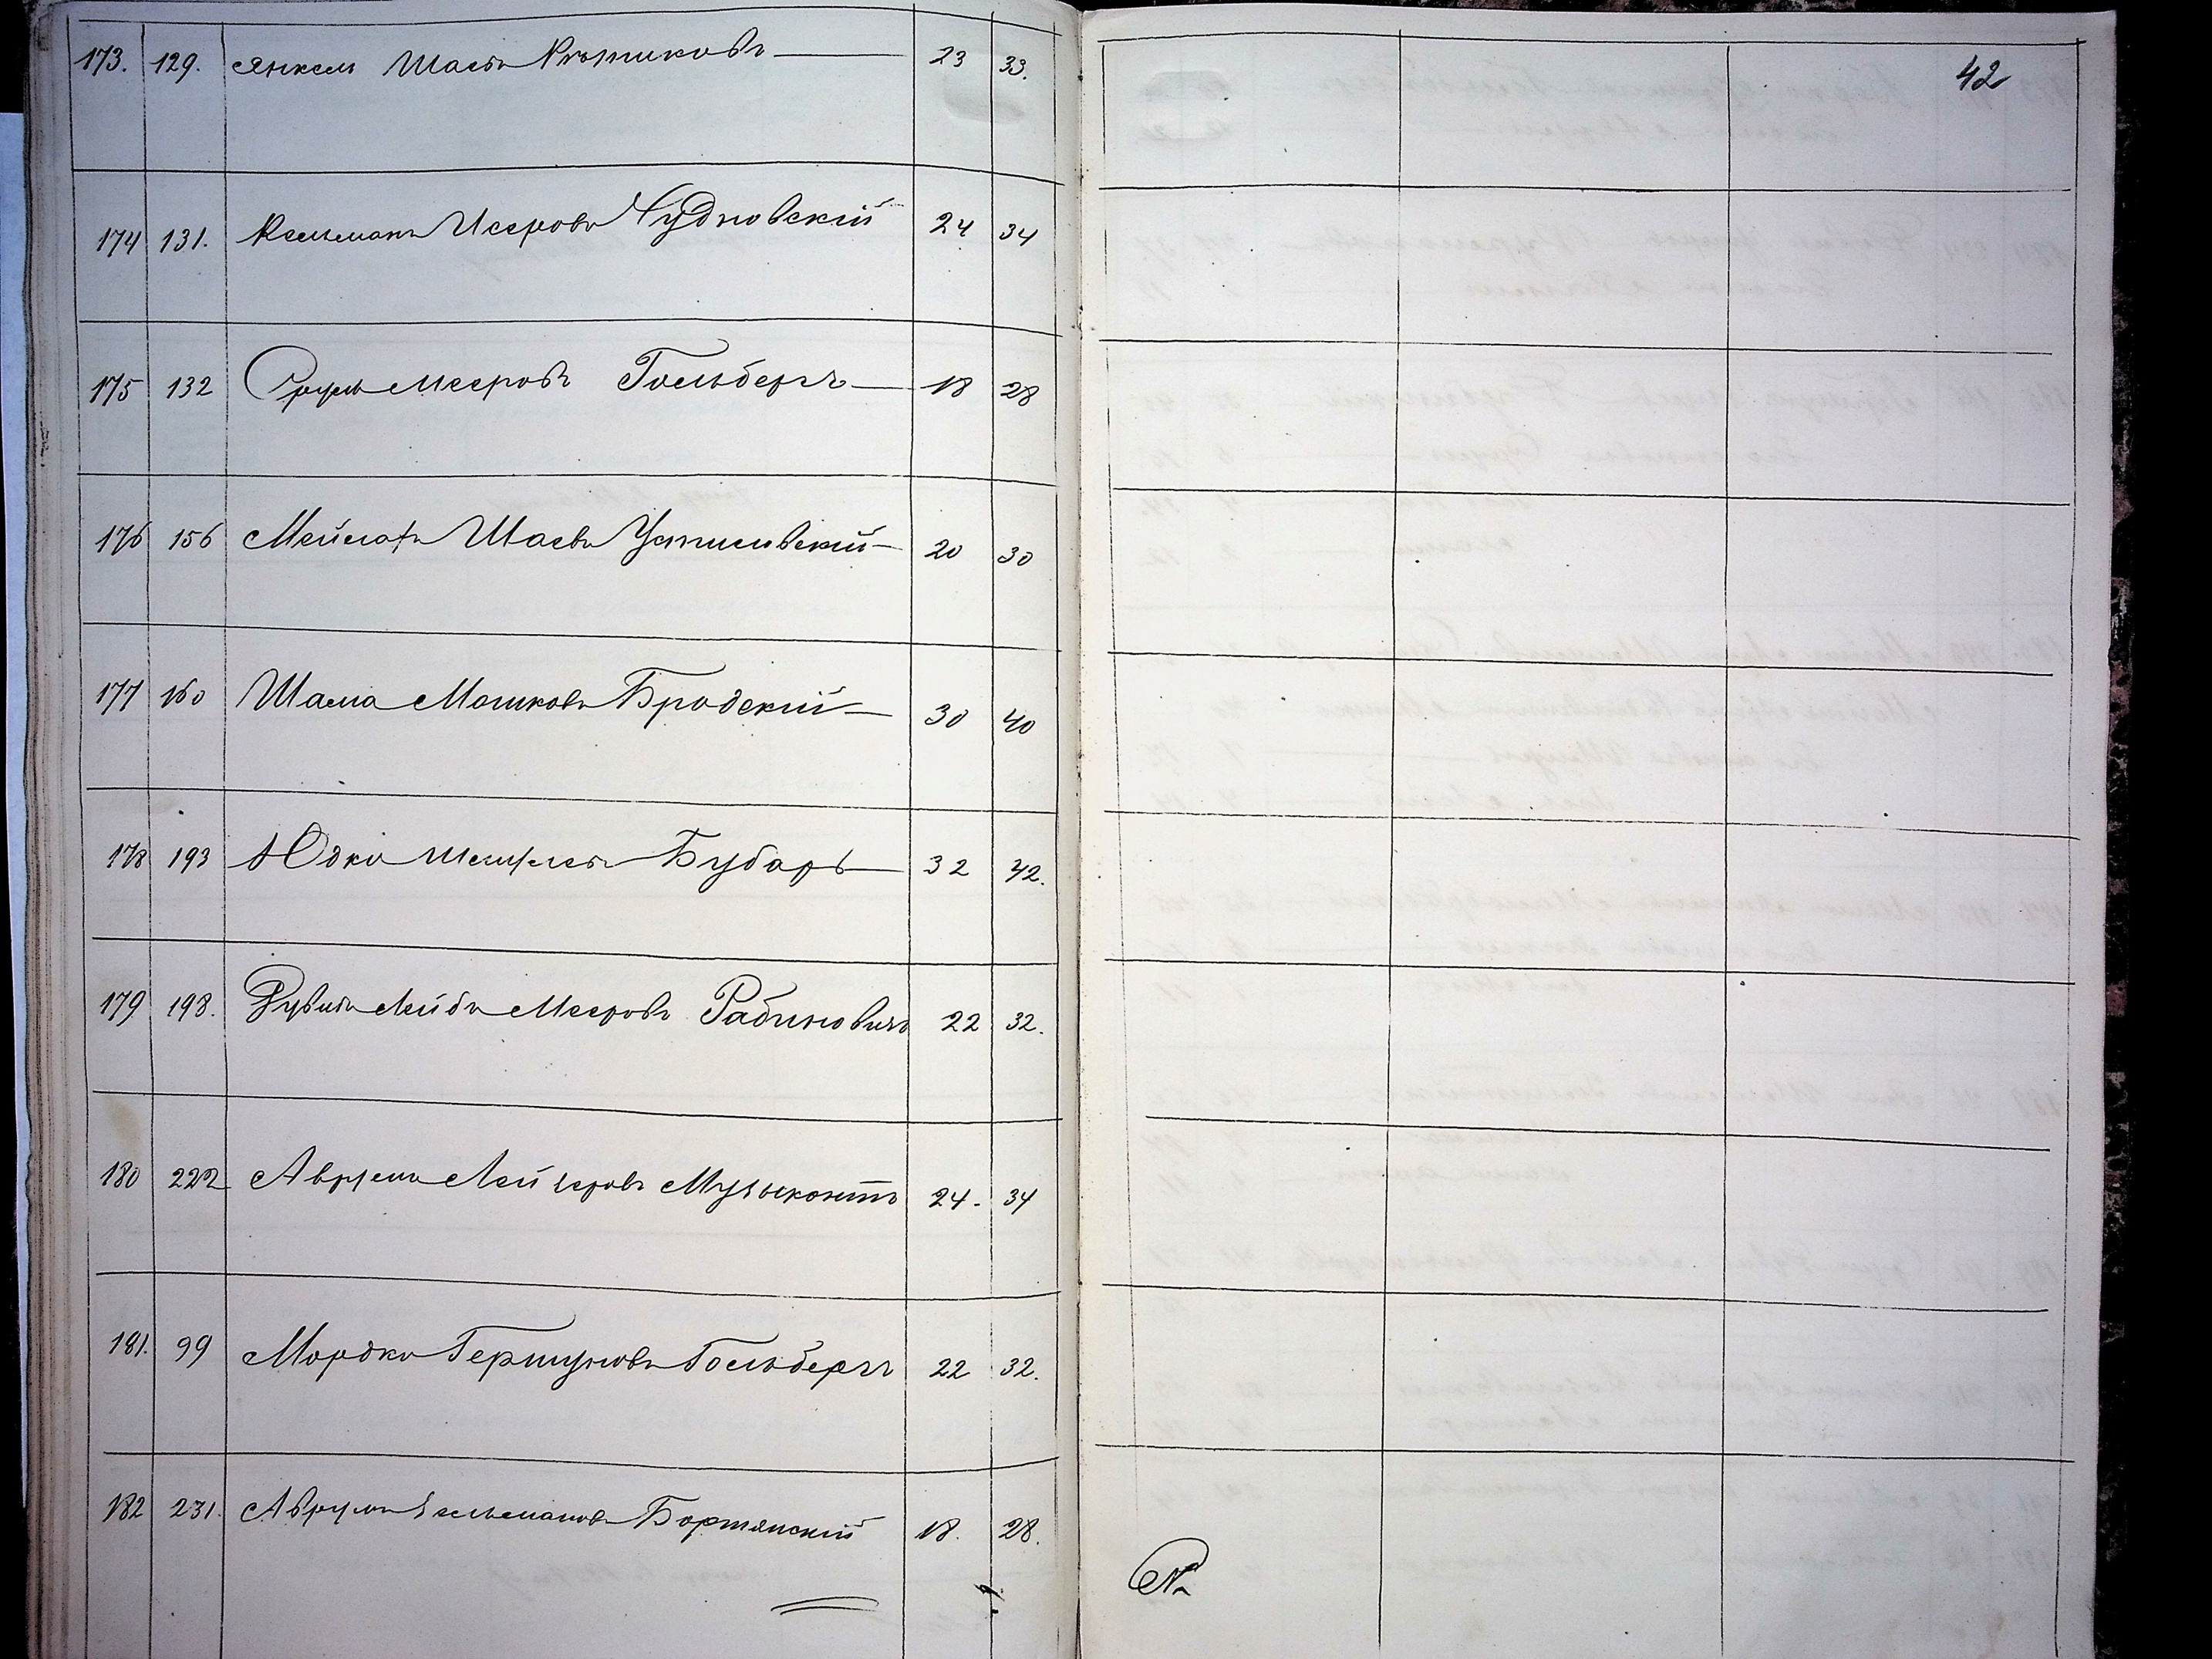 42
173. 129. Янкель Шаевъ Клотиковъ 23 33.
174 131. Кельманъ Исеровъ Чудновскій 24 34
175 132 Сруль Мееровъ Гольбергъ 18 28
176 156 Мейлахъ Шаевъ 20 30
177 160 Шама Мошковъ Бродскій 30 40
178 193 Юдко Бубаръ 32 42.
179 198. Рувинъ Лейбъ Мееровъ Рабиновичъ 22 32.
180 222 Аврумъ Лейзеровъ Музыкантъ 24. 34
181. 99 Мордко Гершуновъ Гольбергъ 22 32.
182 231. Аврумъ Зельмановъ Бортянскій 18. 28.